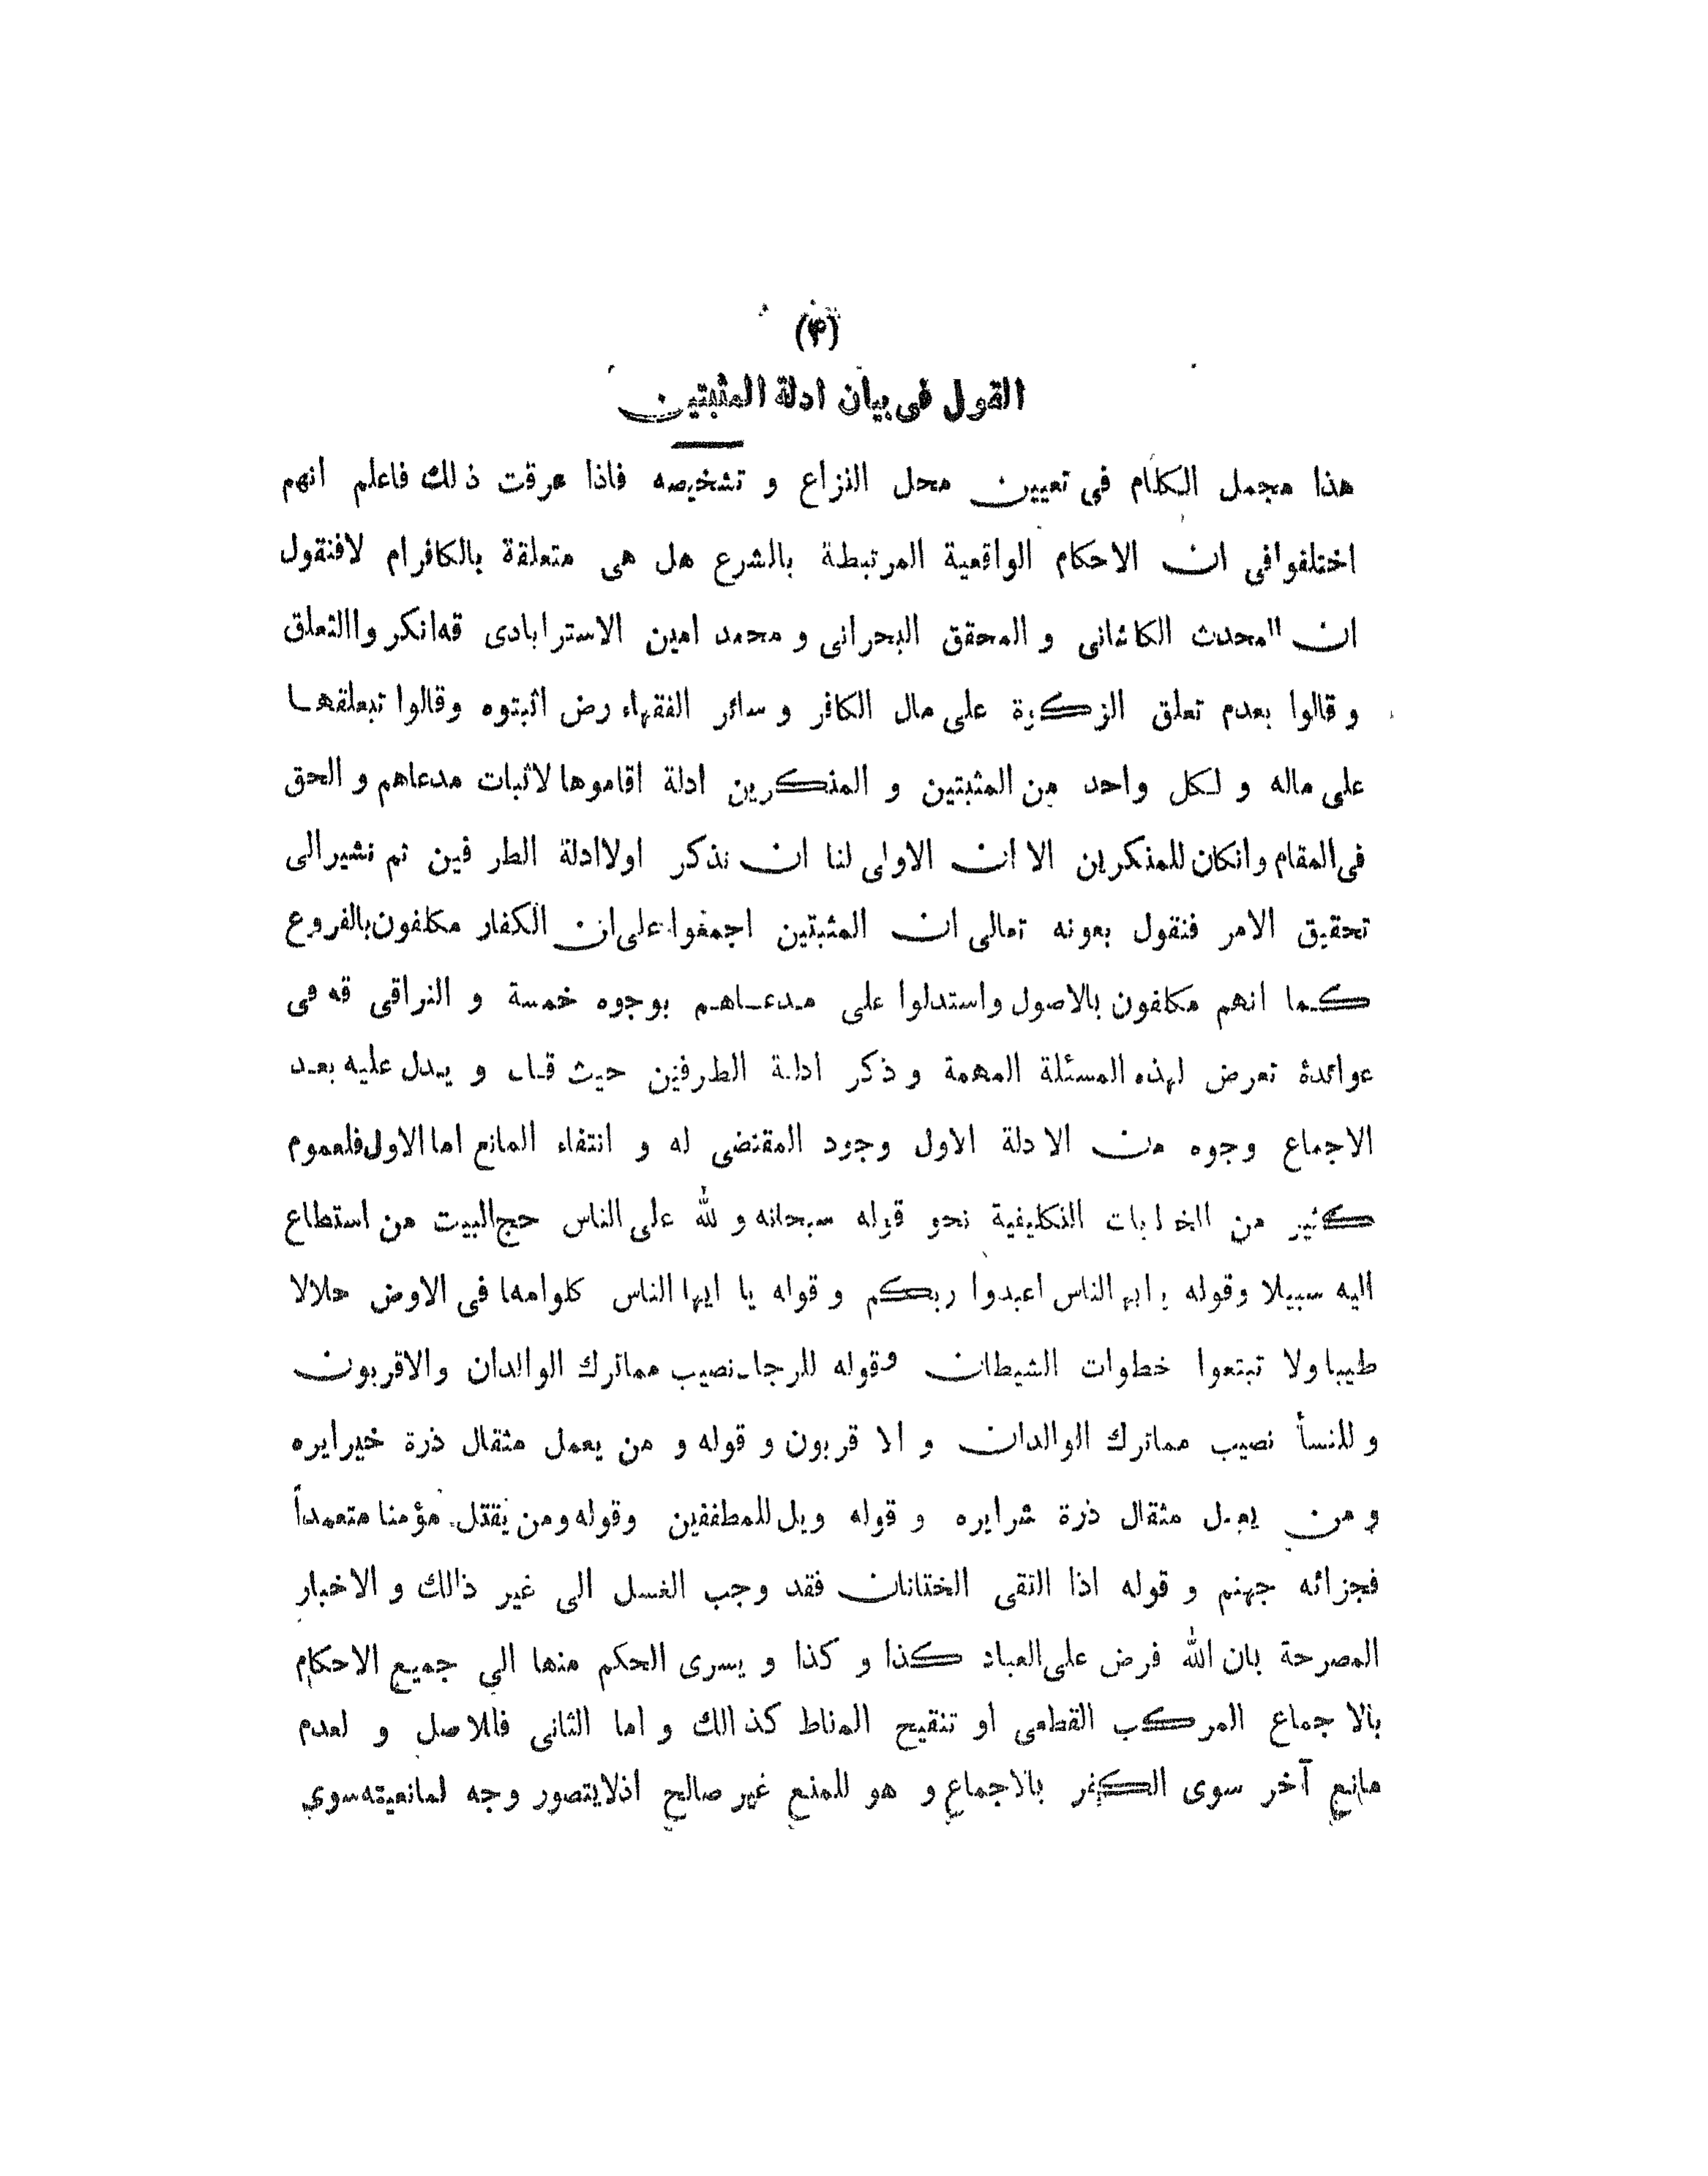 (۴)
القول فى بيان ادلة المثبتين
هذا مجمل الكلام فى تعيين محل النزاع و تشخيصه فاذا عرفت ذلك فاعلم انهم
اختلفوافى ان الاحكام الواقعية المرتبطة بالشرع هل هى متعلقة بالكافرام لافنقول
ان المحدث الكاشانى و المحقق البحرانى و محمد امين الاسترابادى قه انكرواالتعلق
و قالوا بعدم تعلق الزكوة على مال الكافر و سائر الفقهاء رض اثبتوه وقالوا تبعلقها
على ماله و لكل واحد من المثبتين و المنكرين ادلة اقاموها لاثبات مدعاهم و الحق
فى المقام وانكان للمنكرين الا ان الاولى لنا ان نذكر اولاادلة الطر فين ثم نشيرالى
تحقيق الامر فنقول بعونه تعالى ان المثبتين اجمعوا على ان الكفار مكلفون بالفروع
كما انهم مكلفون بالاصول واستدلوا على مدعاهم بوجوه خمسة و النراقى قه فى
عوائدة تعرض لهذه المسئلة المهمة و ذكر ادلة الطرفين حيث قال و يدل عليه بعد
الاجماع وجوه من الا دلة الاول وجود المقتضى له و انتفاء المانع اما الاول فلعموم
كثير من الخطابات التكليفية نحو قوله سبحانه و لله على الناس حج البيت من استطاع
اليه سبيلا وقوله يا ايها الناس اعبدوا ربكم و قوله يا ايها الناس كلوامما فى الاوض حلالا
طيبا ولا تبتعوا خطوات الشيطان وقوله للرجال نصيب مماترك الوالدان والاقربون
و للنسأ نصيب مماترك الوالدان و الا قربون و قوله و من يعمل مثقال ذرة خيرايره
و من يعمل مثقال ذرة شرايره و قوله ويل للمطففين وقوله ومن يقتل مؤمنا متعمداً
فجزائه جهنم و قوله اذا التقى الختانان فقد وجب الغسل الى غير ذالك و الاخبار
المصرحة بان الله فرض على العباد كذا و كذا و يسرى الحكم منها الي جميع الاحكام
بالا جماع المركب القطعى او تنقيح المناط كذ الك و اما الثانى فاللاصل و لعدم
مانع آخر سوى الكفر بالاجماع و هو للمنع غير صالح اذلايتصور وجه لمانعيته سوي